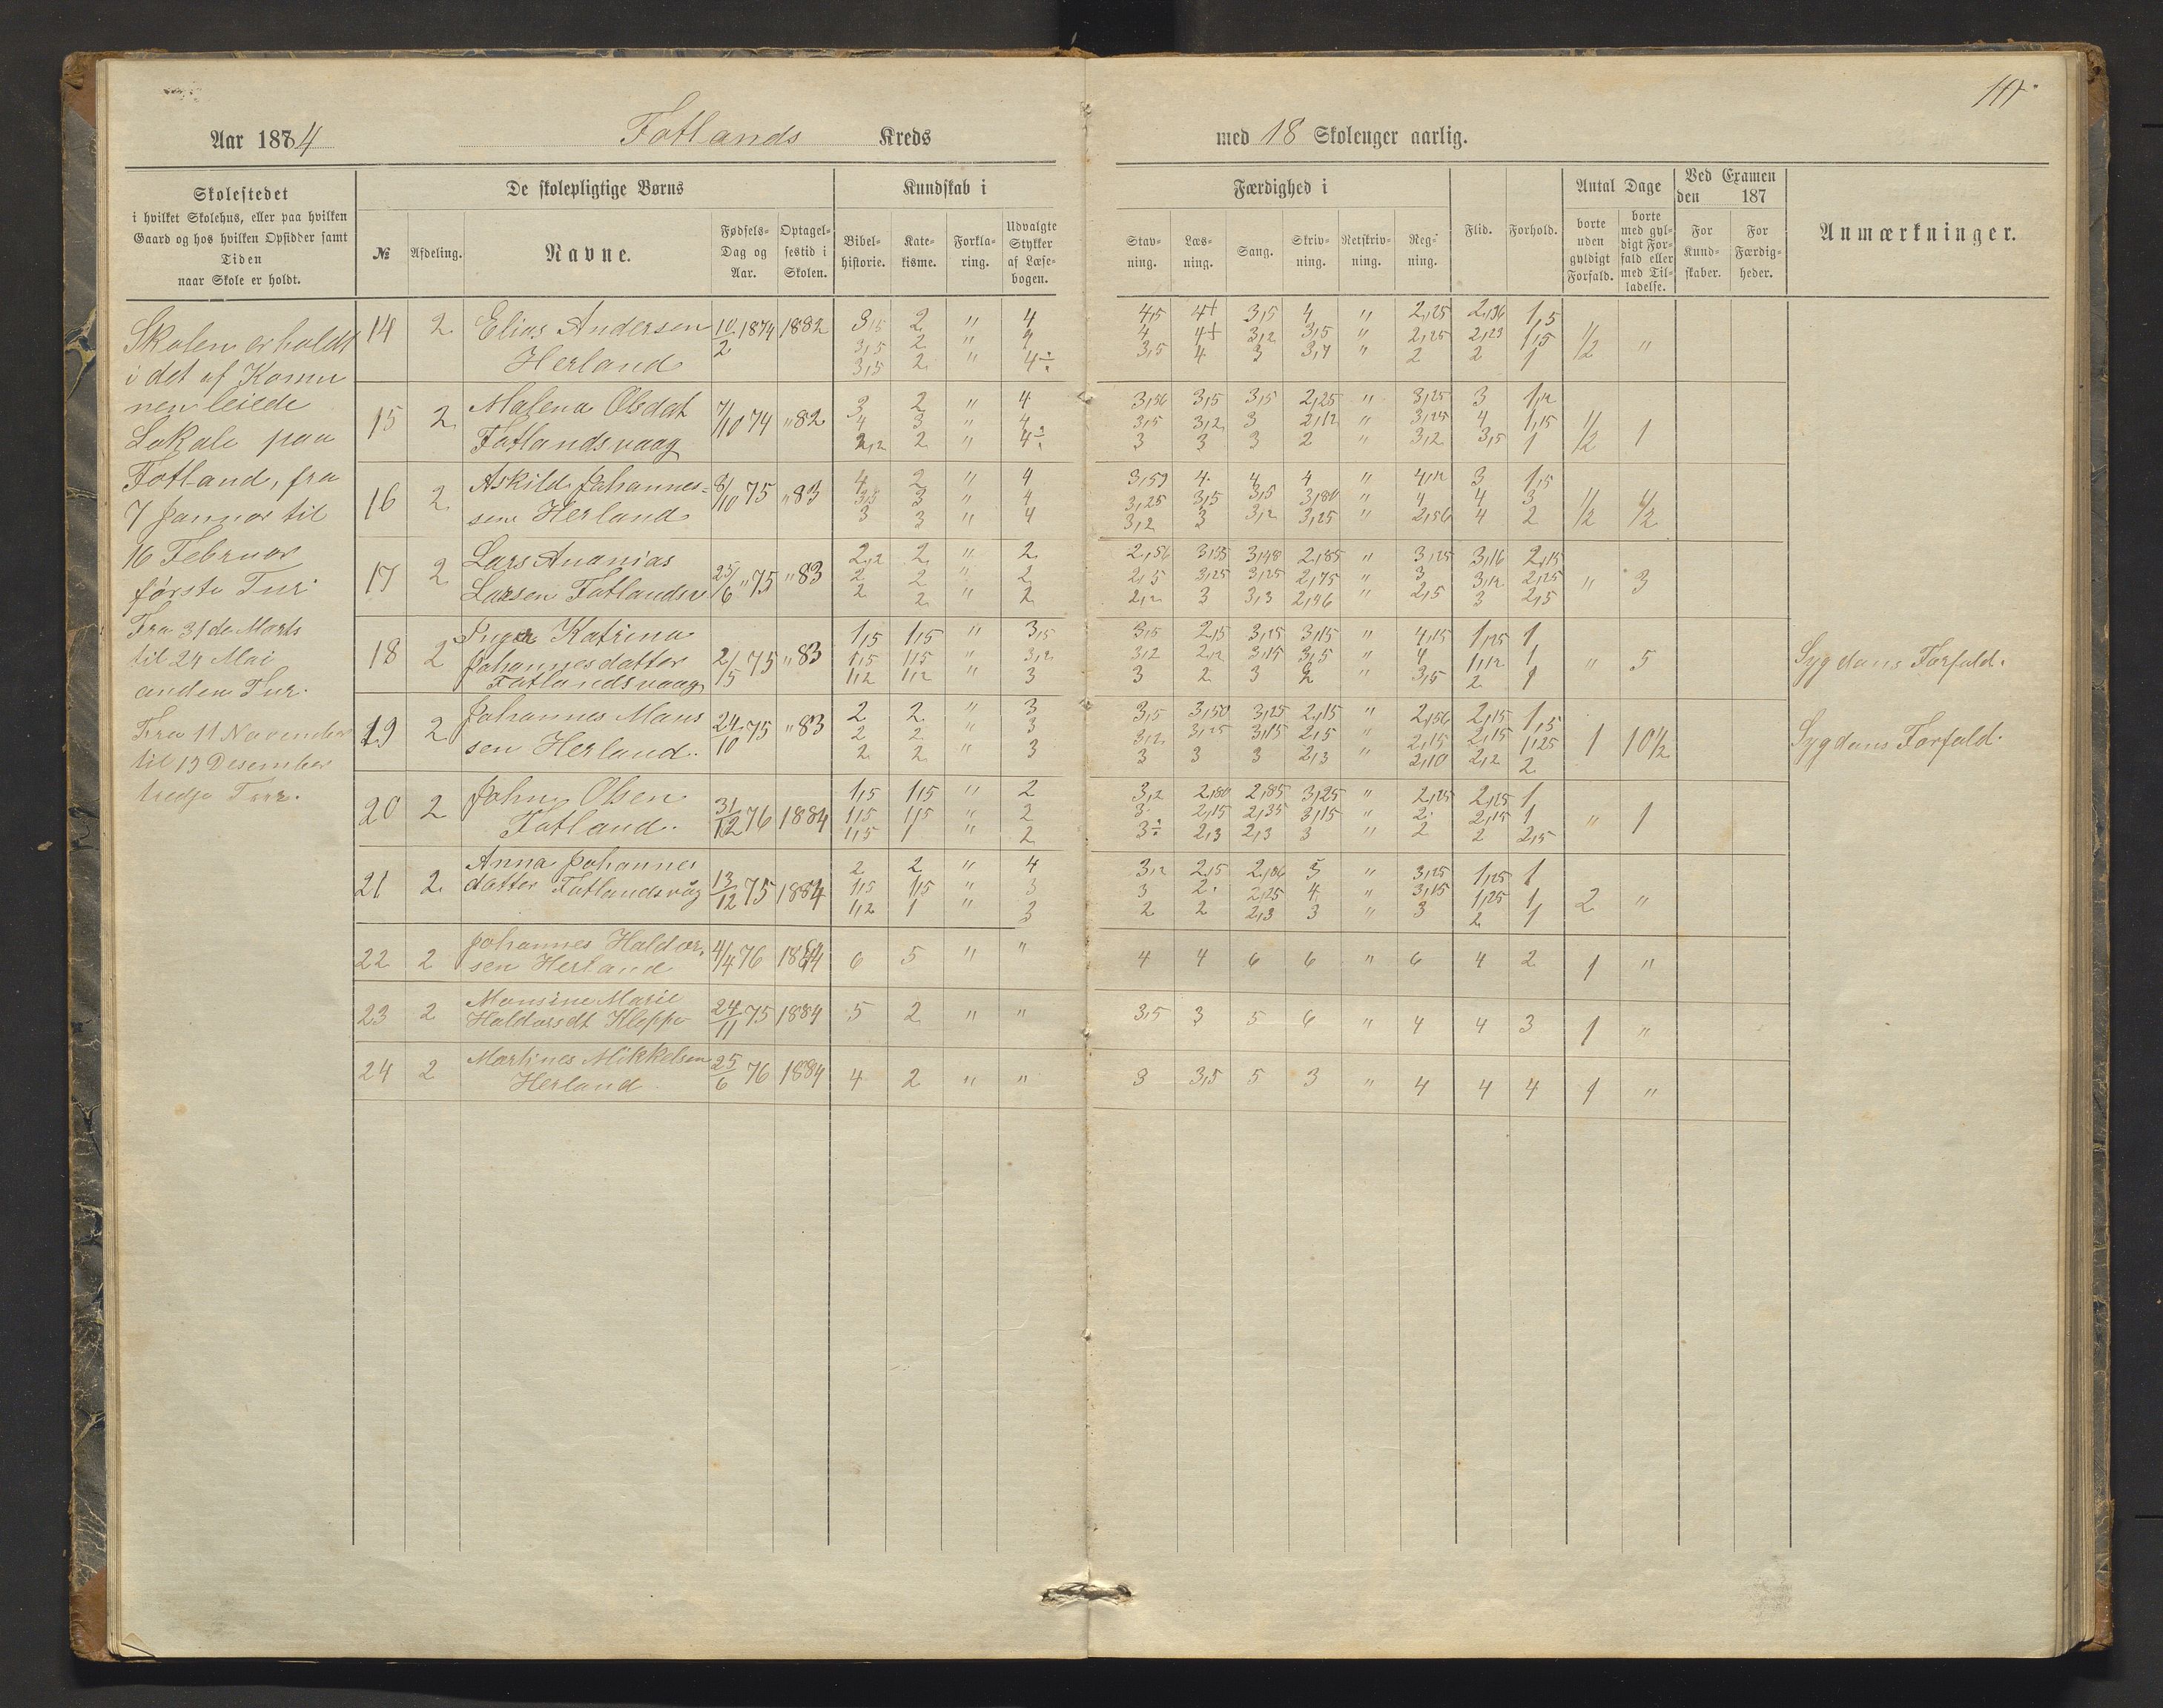 111
Aar 1884 Fotlands Kreds med 18 Skoleuger aarlig.
Skolestedet
i hvilket Skolehus, eller paa hvilken
Gaard og hos hvilken Opsidder samt
Tiden
naar Skole er holdt.
De skolepligtige Børns
№ Afdeling. Navne. Fødsels-Dag og Aar. Optagel-sestid i Skolen.
Kundskab i
Bibel-historie. Kate-kisme. Forkla-ring. Udvalgte Stykker af Læse-bogen.
Færdighed i
Stav-ning. Læs-ning. Sang. Skriv-ning. Retskriv-ning. Reg-ning.
Flid. Forhold.
Antal Dage
borte uden gyldigt Forfald. borte med gyl-digt For-fald eller med Til-ladelse.
Ved Examen
den 187
For Kund-skaber. For Færdig-heder.
Anmærkninger.
Skolen er holdt
i det af Komu
nen leiede
Lokale paa
Fotland, fra
7 Januar til
16 Februar
første Tur
Fra 31de Marts
til 24 Mai
anden Tur.
Fra 11 November
til 19 Desember
tredje Tur.
14 2 Elias Andersen 10/2 1874 1882 3,5 2 " 4 4,5 4+ 3,5 4 " 2,25 2,36 1,5
3,5 2 " 4 4 4+ 3,2 3,5 " 2,25 2,23 1,5 1/2 "
Herland 3,5 2 " 4÷ 3,5 4 3 3,4 " 2 2 1
15 2 Malena Olsdat 7/10 74 " 82 3 2 " 4 3,56 3,5 3,5 2,25 " 3,25 3 1,2
4 3 " 4 3,5 3,2 3 2,12 " 3,25 4 1,15 1/2 1
Fotlandsvaag 2,2 2 " 4÷ 3 3 3 2 " 3,2 3,5 1
16 2 Askild Johannes= 8/10 75 " 83 4 2 " 4 3,59 4 4 4 " 4,12 3 1,5
3,5 3 " 4 3,25 3,5 3,5 3,80 " 4 4 3 1/2 1/2
sen Herland 3 3 " 4 3,2 3 3,2 3,25 " 2,56 4 2
17 2 Lars Ananias 25/6 " 75 " 83 2,2 2 " 2 2,56 3,35 3,48 2,85 " 3,25 3,16 2,15
2 2 " 2 2,5 3,25 3,25 2,75 " 3 3,12 2,25 " 3
Larsen Fotlandsv 2 2 " 2 2,2 3 3,3 2,46 " 2,5 3 2,5
18 2 Inger Katrina 2/5 75 " 83 1,5 1,5 " 3,5 3,5 2,5 3,25 3,15 " 4,15 1,25 1
Johannesdatter 1,5 1,5 " 3,2 3,2 2,2 3,15 3,5 " 4 1,12 1 " 5 Sygdans Forfald.
Fotlandsvaag 1,2 1,2 " 3 3 2 3 2 " 3,5 2 1
19 2 Johannes Mons 24/10 75 " 83 2 2 " 3 3,5 3,50 3,25 2,15 " 2,56 2,15 1,5
2 2 " 3 3,2 3,25 3,15 2,5 " 2,15 2,15 1,25 1 10 1/2 Sygdans Forfald.
sen Herland. 2 2 " 3 3 3 3 2,3 " 2,10 2,2 2
20 2 John Olsen 31/12 76 1884 1,5 1,5 " 2 3,2 2,80 2,85 3,25 " 2,25 2,25 1
1,5 1,5 " 2 3 2,15 2,35 3,15 " 2 2,15 1 " 1
Fotland. 1,5 1 " 2 3÷ 2,3 2,3 3 " 2 2 2,5
21 2 Anna Johannes 13/12 75 1884 2 2 " 4 3,2 2,5 2,86 5 " 3,25 1,25 1
datter Fotlandsvåg 1,5 1,5 " 3 3 2 2,25 4 " 3,15 1,25 1 2 "
1,2 1 " 3 2 2 2,3 3 " 3 2 1
22 2 Johannes Haldor, 4/4 76 1884 6 5 " " 4 4 6 6 " 6 4 2 1 "
sen Herland
23 2 Monsine Marie 24/11 75 1884 5 2 " " 3,5 3 5 6 " 4 4 3 1 "
Haldorsdt Kleppe
24 2 Martines Mikkelsen 25/6 76 1884 4 2 " " 3 3,5 5 3 " 4 4 4 1 "
Herland